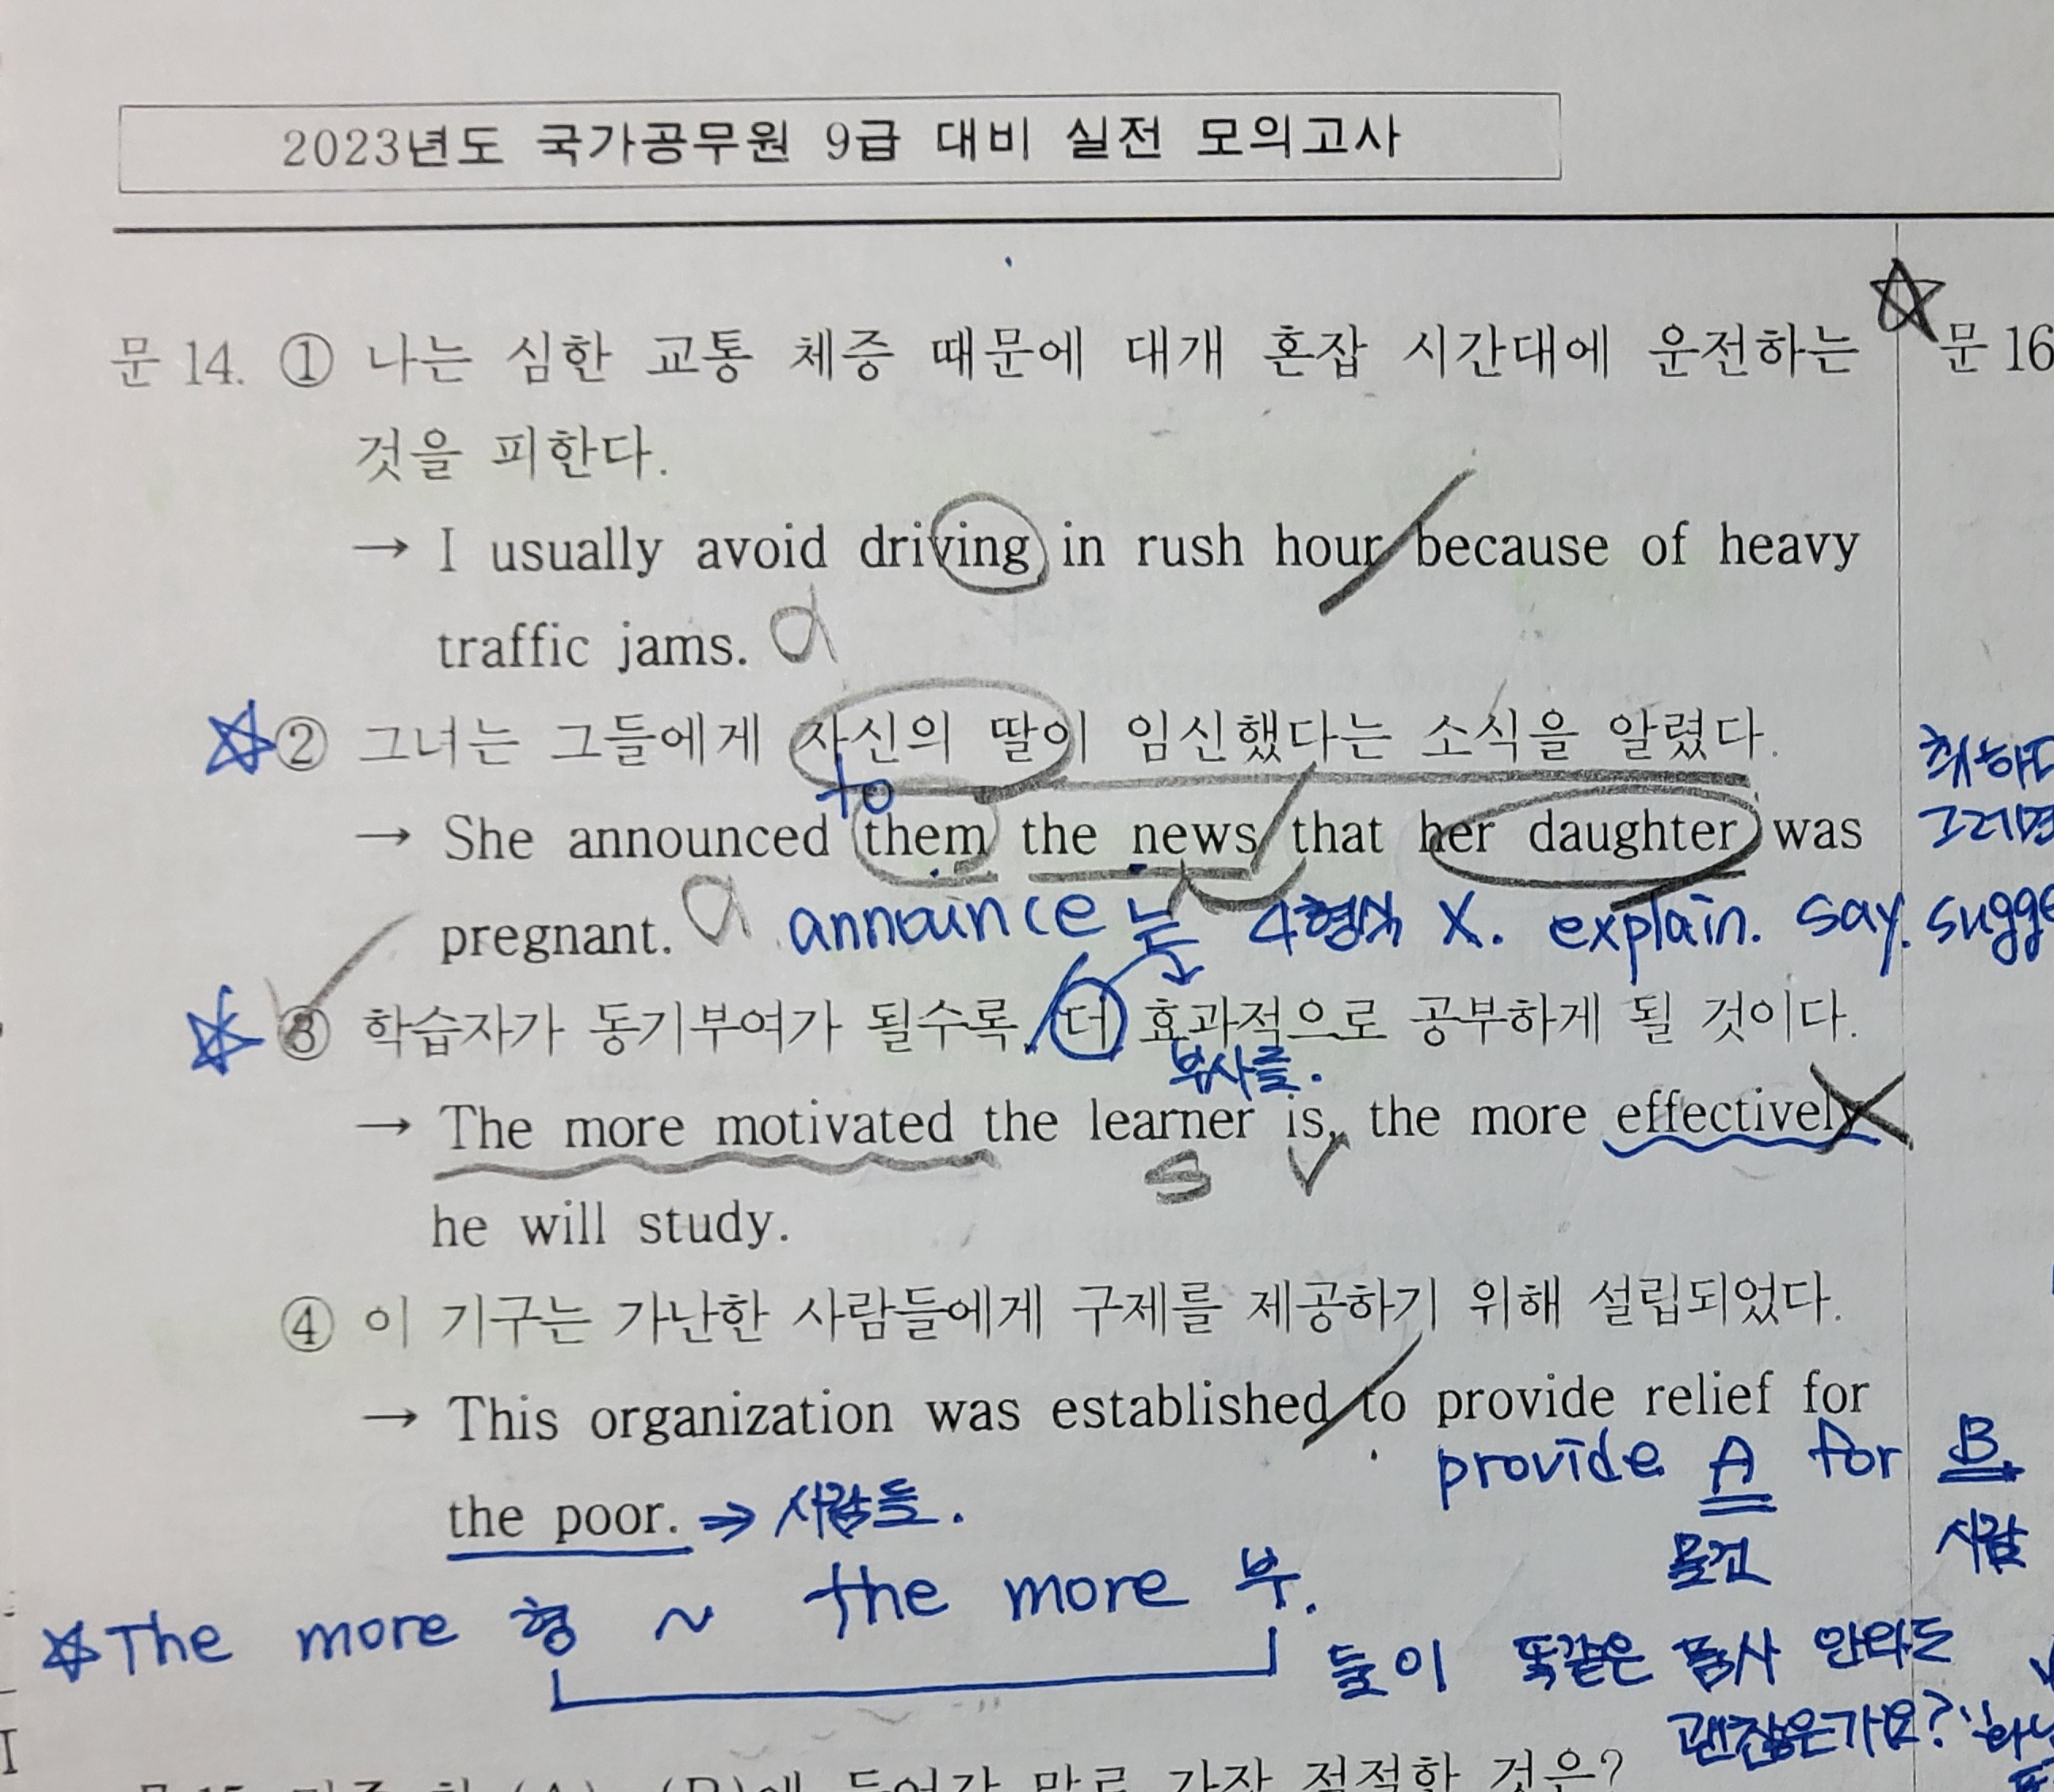 2023년도 국가공무원 9급 대비 실전 모의고사
문 14. ① 나는 심한 교통 체증 때문에 대개 혼잡 시간대에 운전하는
문 16
것을 피한다.
→ I usually avoid driving in rush hour because of heavy
traffic jams.
② 그녀는 그들에게 자신의 딸이 임신했다는 소식을 알렸다.
취하다
to
→ She announced them the news that her daughter was
그러면
pregnant.
announce 는 4형식 X. explain. say. sugge
③ 학습자가 동기부여가 될수록 더 효과적으로 공부하게 될 것이다.
부사를.
→ The more motivated the learner is, the more effectively
S V
he will study.
④ 이 기구는 가난한 사람들에게 구제를 제공하기 위해 설립되었다.
→ This organization was established to provide relief for
provide A for B
the poor. → 사람들.
물건 사람
The more 형 ~ the more 부.
둘이 똑같은 품사 안와도
괜찮은가요?